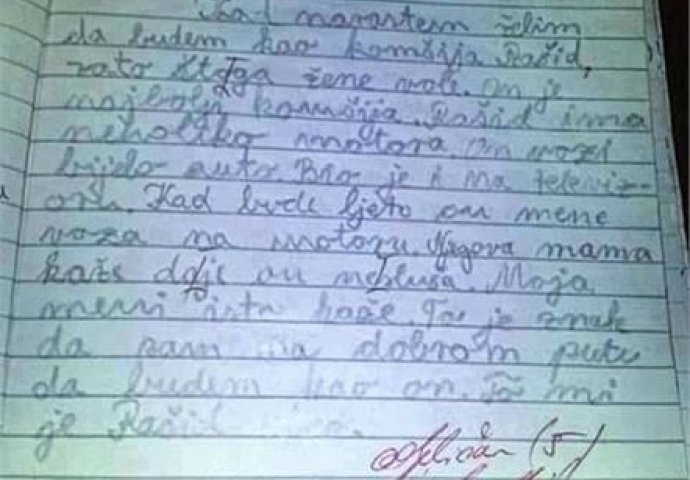 Kad narastem želim
da budem kao komšija Rašid,
zato štoga žene vole. On je
najbolji komšija. Rašid ima
nekoliko motora. On vozi
bijelo auto. Bio je i na televiz-
oru. Kad bude ljeto on mene
voza na motoru. Njegova mama
kaže daje on nesluša. Moja
meni isto kaže. To je znak
da sam na dobrom putu
da budem kao on. To mi
je Rašid
odličan (5)